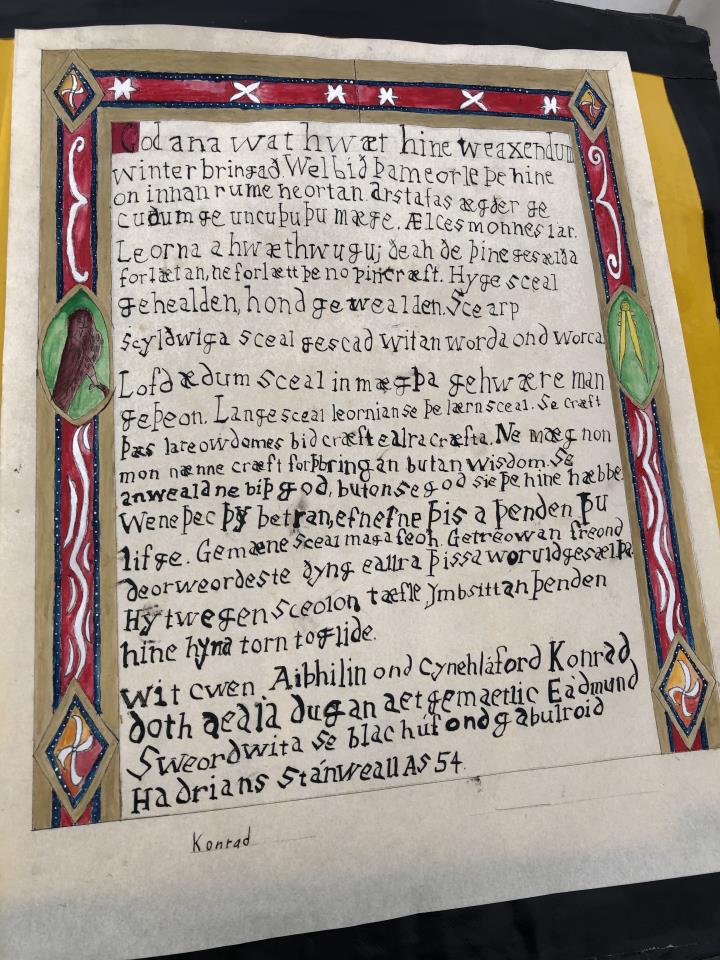 God ana wat hwæt hine weaxendum
winter bringað Wel bið þam eorle þe hine
on innan rume heortan. Arstafas ægðer ge
cuðum ge uncuþu þu mæge. Ælces monnes lar.
Leorna a hwæthwugu; ðeah ðe þine gesælða
forlætan, ne forlætt þe no þin cræft. Hyge sceal
gehealden, hond gewealden. Scearp
scyldwiga sceal gescad witan worda ond worca
Lofdædum sceal in mægþa gehwære man
geþeon. Lange sceal leornian se þe læran sceal. Se cræft
þæs lareowdomes bið cræft ealra cræfta. Ne mæg non
mon nænne cræft forþbringan butan wisdom. Se
anweald ne biþ god, buton se god sie þe hine hæbbe
Wene þec þy betran, efn elne þis a þenden þu
lifge. Gemæne sceal maga feoh. Getreowan freond
deorweordeste ðyng eallra þissa woruldgesælþa
Hy twegen sceolon tæfle ymbsittan þenden
hine hyra torn toglide.
Wit cwen Aibhilin ond cynehláford Konrad
doth aeala dugan aet gemaetlic Eádmund
Sweordwita se blac huf ond gabulroid
Hadrians Stánweall As 54.
Konrad